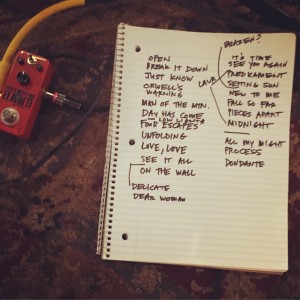 OPEN
BREAK IT DOWN
JUST KNOW
ORWELL'S
WARNING
MAN OF THE MTN.
DAY HAS COME
FOUR ESCAPES
UNFOLDING
LOVE, LOVE
SEE IT ALL
ON THE WALL
DELICATE
DEAR WOMAN
IT'S TIME
SEE YOU AGAIN
PREDICAMENT
SETTING SUN
NEW TO ME
FALL SO FAR
PIECES APART
MIDNIGHT
ALL MY MIGHT
PROCESS
DONDANTE